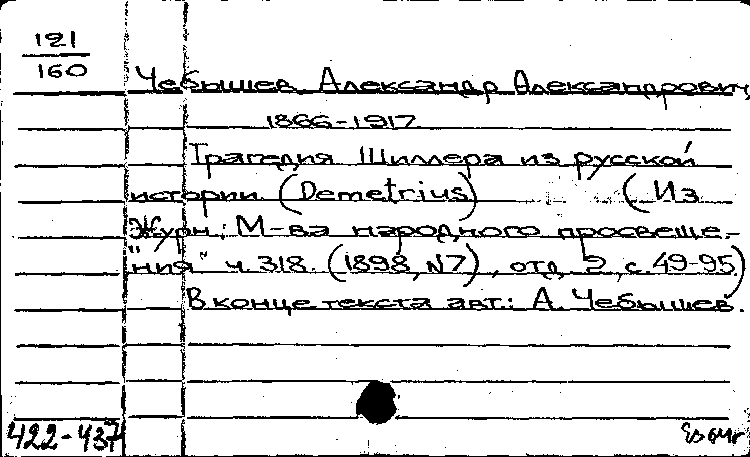 121
160
Чебышев, Александр Александрович,
1866-1917
Трагедия Шиллера из русской
истории (Demetrius) (Из
"Журн. М-ва народного просвеще-
ния" ч. 318. (1898, N7), отд. 2, с. 49-95)
В конце текста авт.: А. Чебышев.
422-437